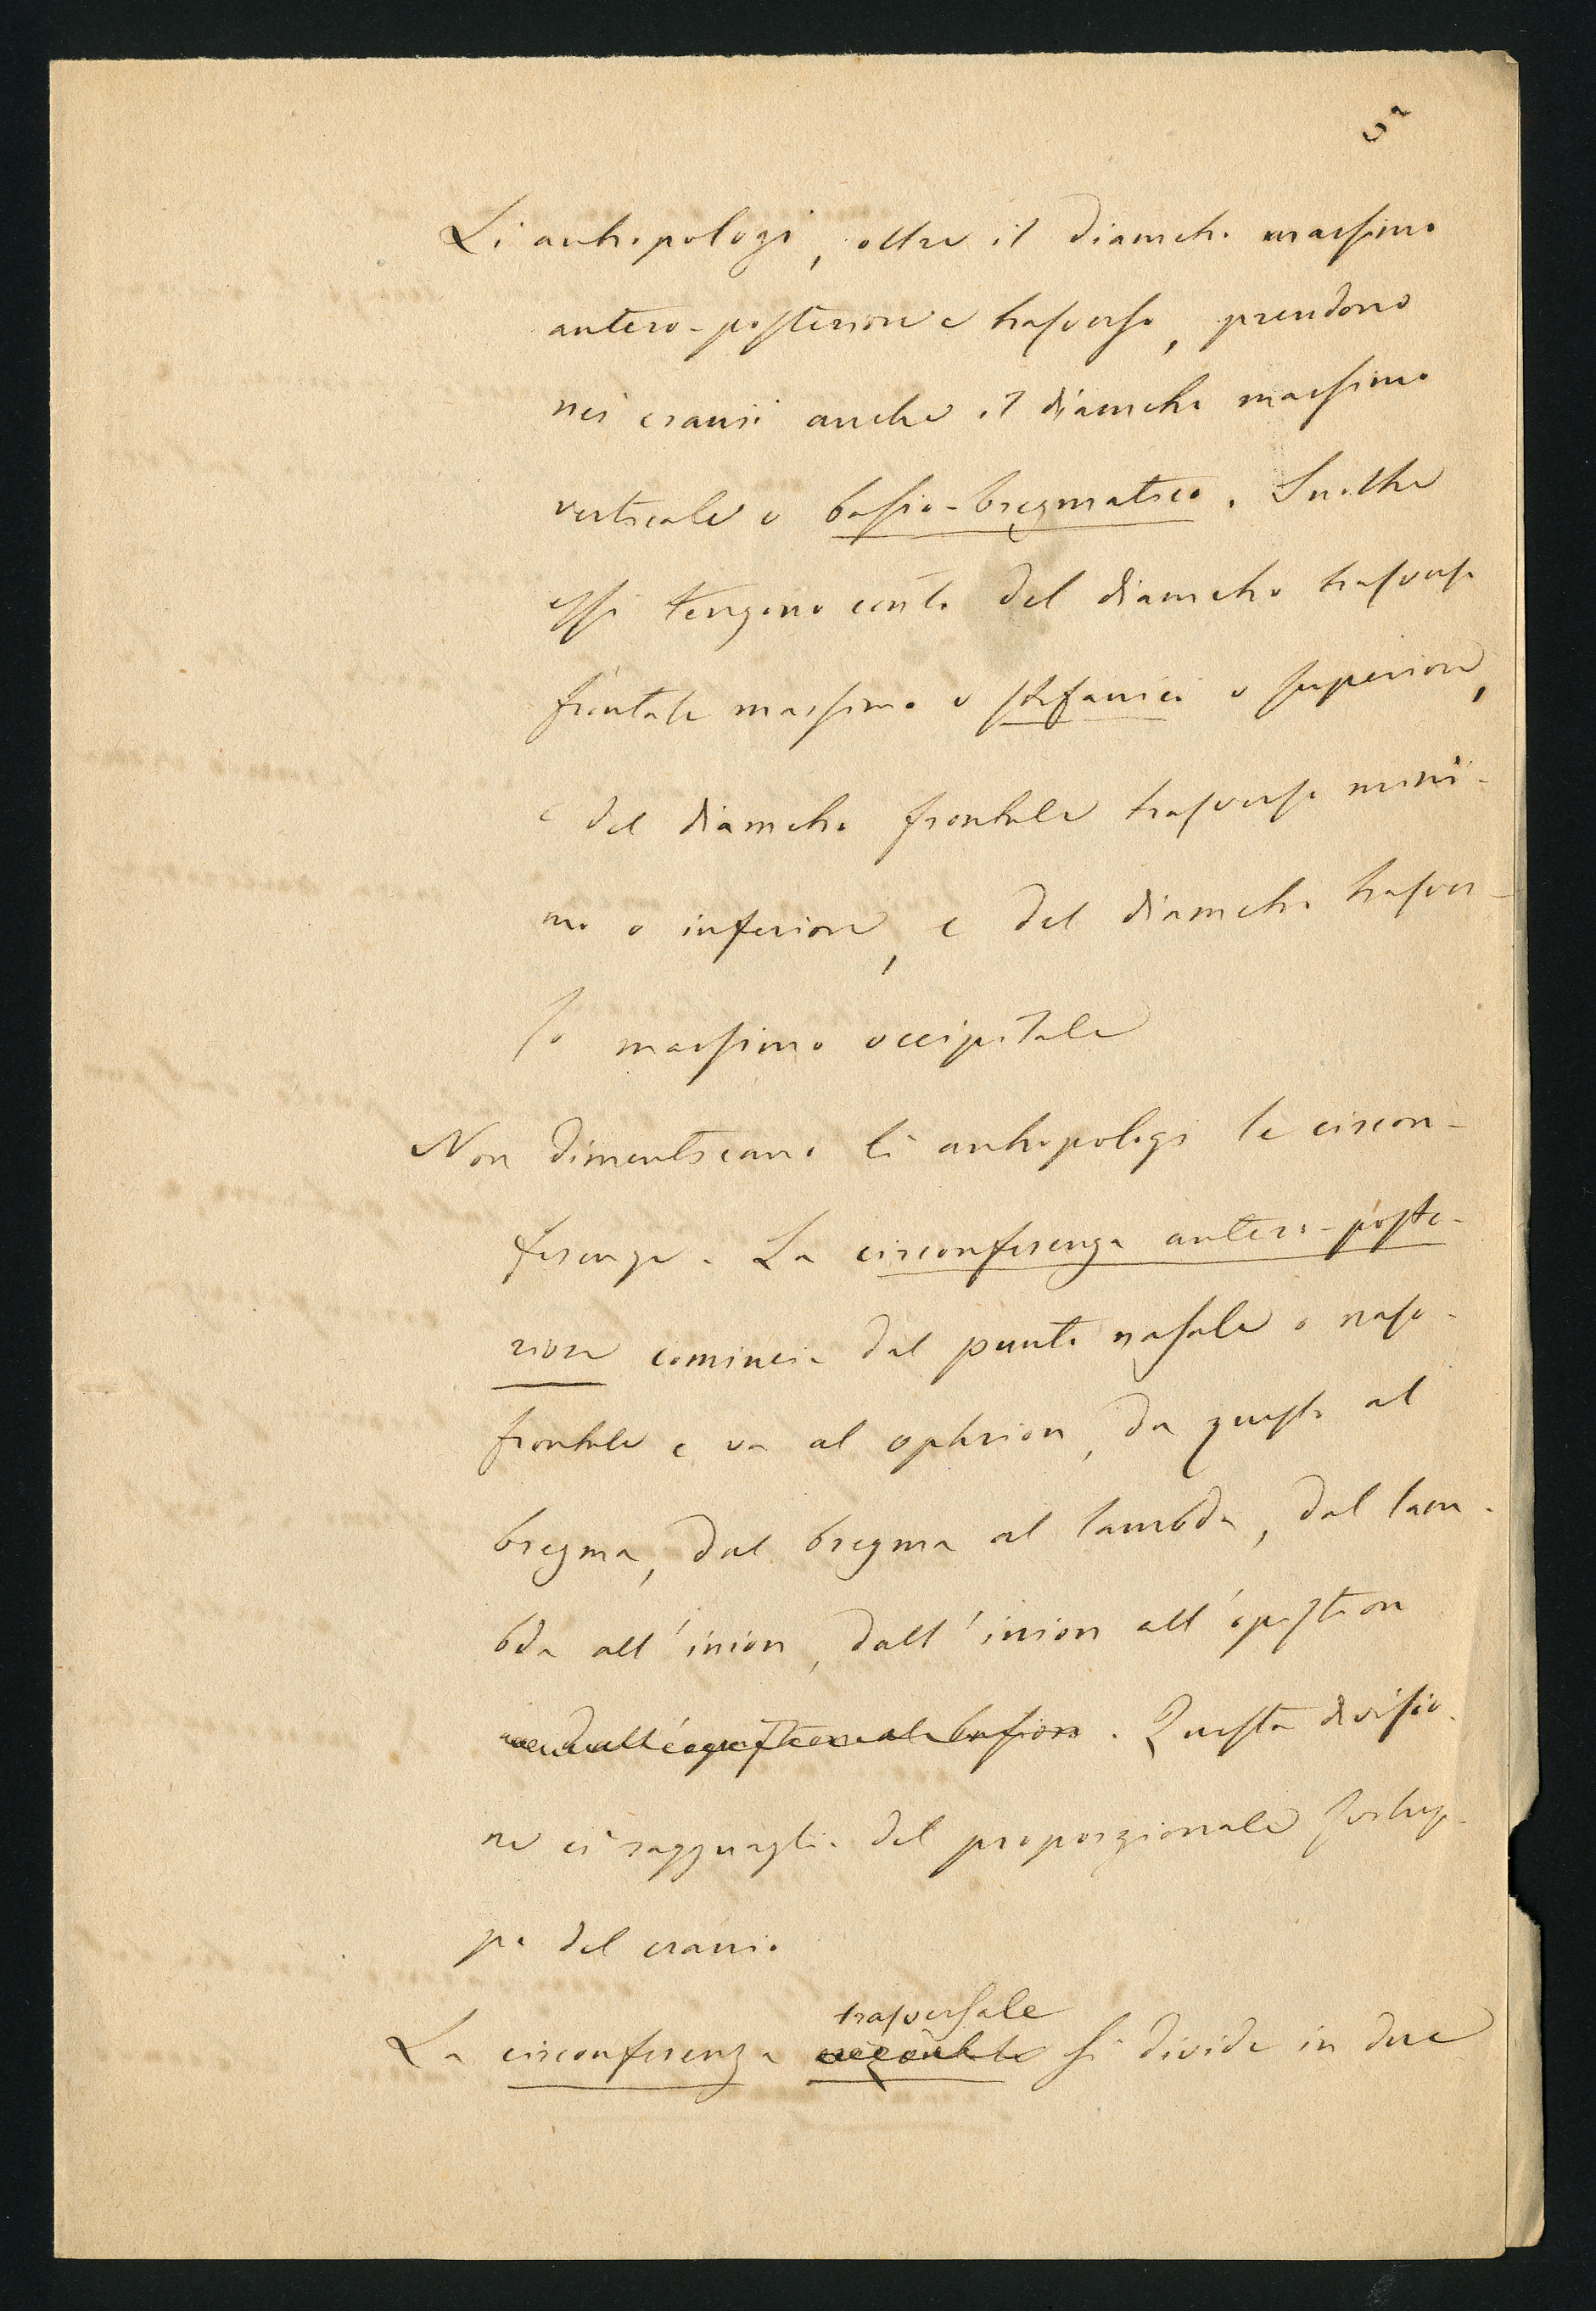 Li antropologi, oltre il diametro massimo
antero-posteriore e trasverso, prendono
nei crani anche il diametro massimo
verticale o basio-bregmatico. Inoltre
essi tengono conto del diametro trasverso
frontale massimo o stefanico o superiore,
e del diametro frontale trasverso mini-
mo o inferiore, e del diametro trasver-
so massimo occipitale
Non dimenticano li antropologi le circon-
ferenze. La circonferenza antero-poste-
riore comincia dal punto nasale o naso-
frontale e va al ophrion, da questo al
bregma, dal bregma al lambda, dal lam-
bda all'inion, dall'inion all'opistion
dall'opistion al basion. Questa divisio-
ne ci ragguaglia del proporzionale svilup-
po del cranio
trasversale
La circonferenza si divide in due